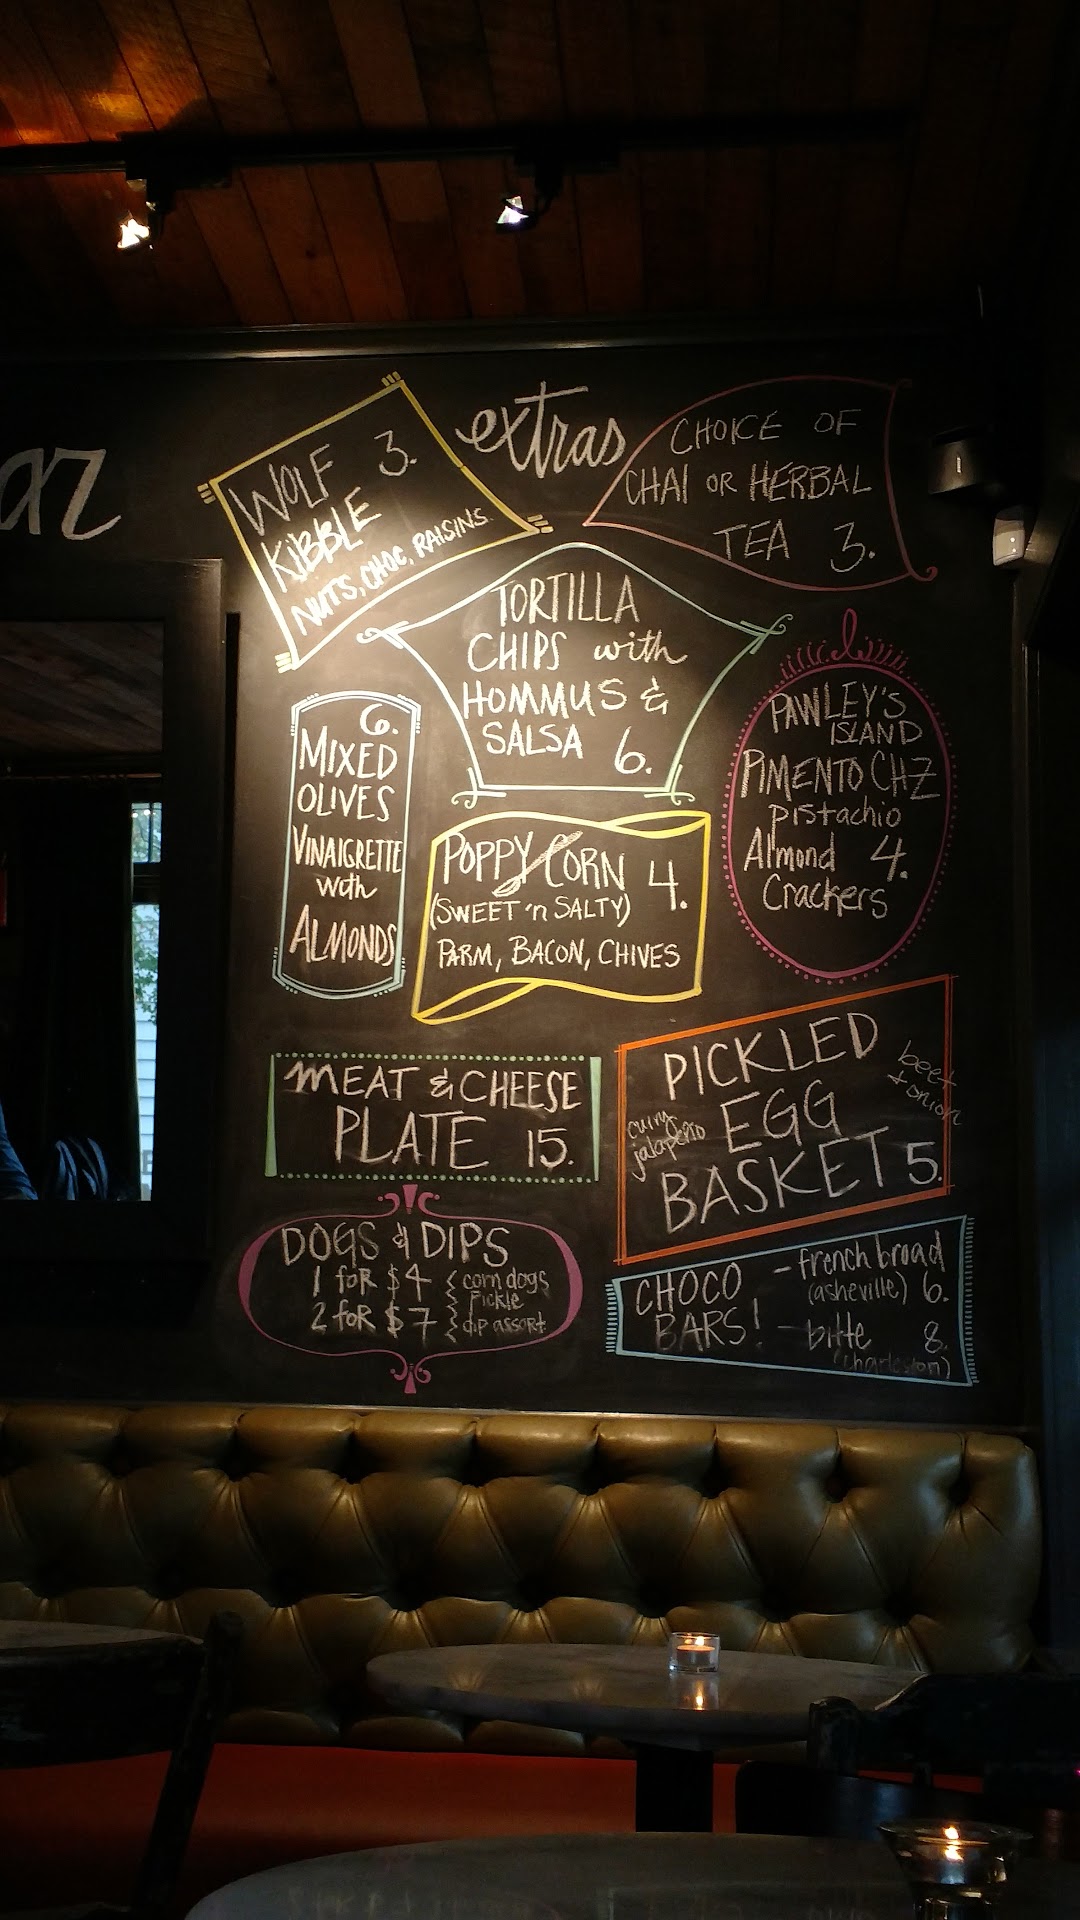 ar
extras
WOLF 3.
KIBBLE
NUTS, CHOC, RAISINS.
CHOICE OF
CHAI OR HERBAL
TEA 3.
TORTILLA
CHIPS with
HOMMUS &
SALSA 6.
6.
MIXED
OLIVES
VINAIGRETTE
with
ALMONDS
PAWLEY'S
ISLAND
PIMENTO CHZ
PISTachio
Almond 4.
Crackers
POPPY CORN 4.
(SWEET 'n SALTY)
PARM, BACON, CHIVES
MEAT & CHEESE
PLATE 15.
PICKLED
EGG
BASKET 5.
curry
jalapeño
beet
+ onion
DOGS & DIPS
1 foR $4 { corn dogs
pickle
2 foR $7 { dip assort.
CHOCO
BARS!
- french broad
(asheville) 6.
- bitte 8.
(charleston)